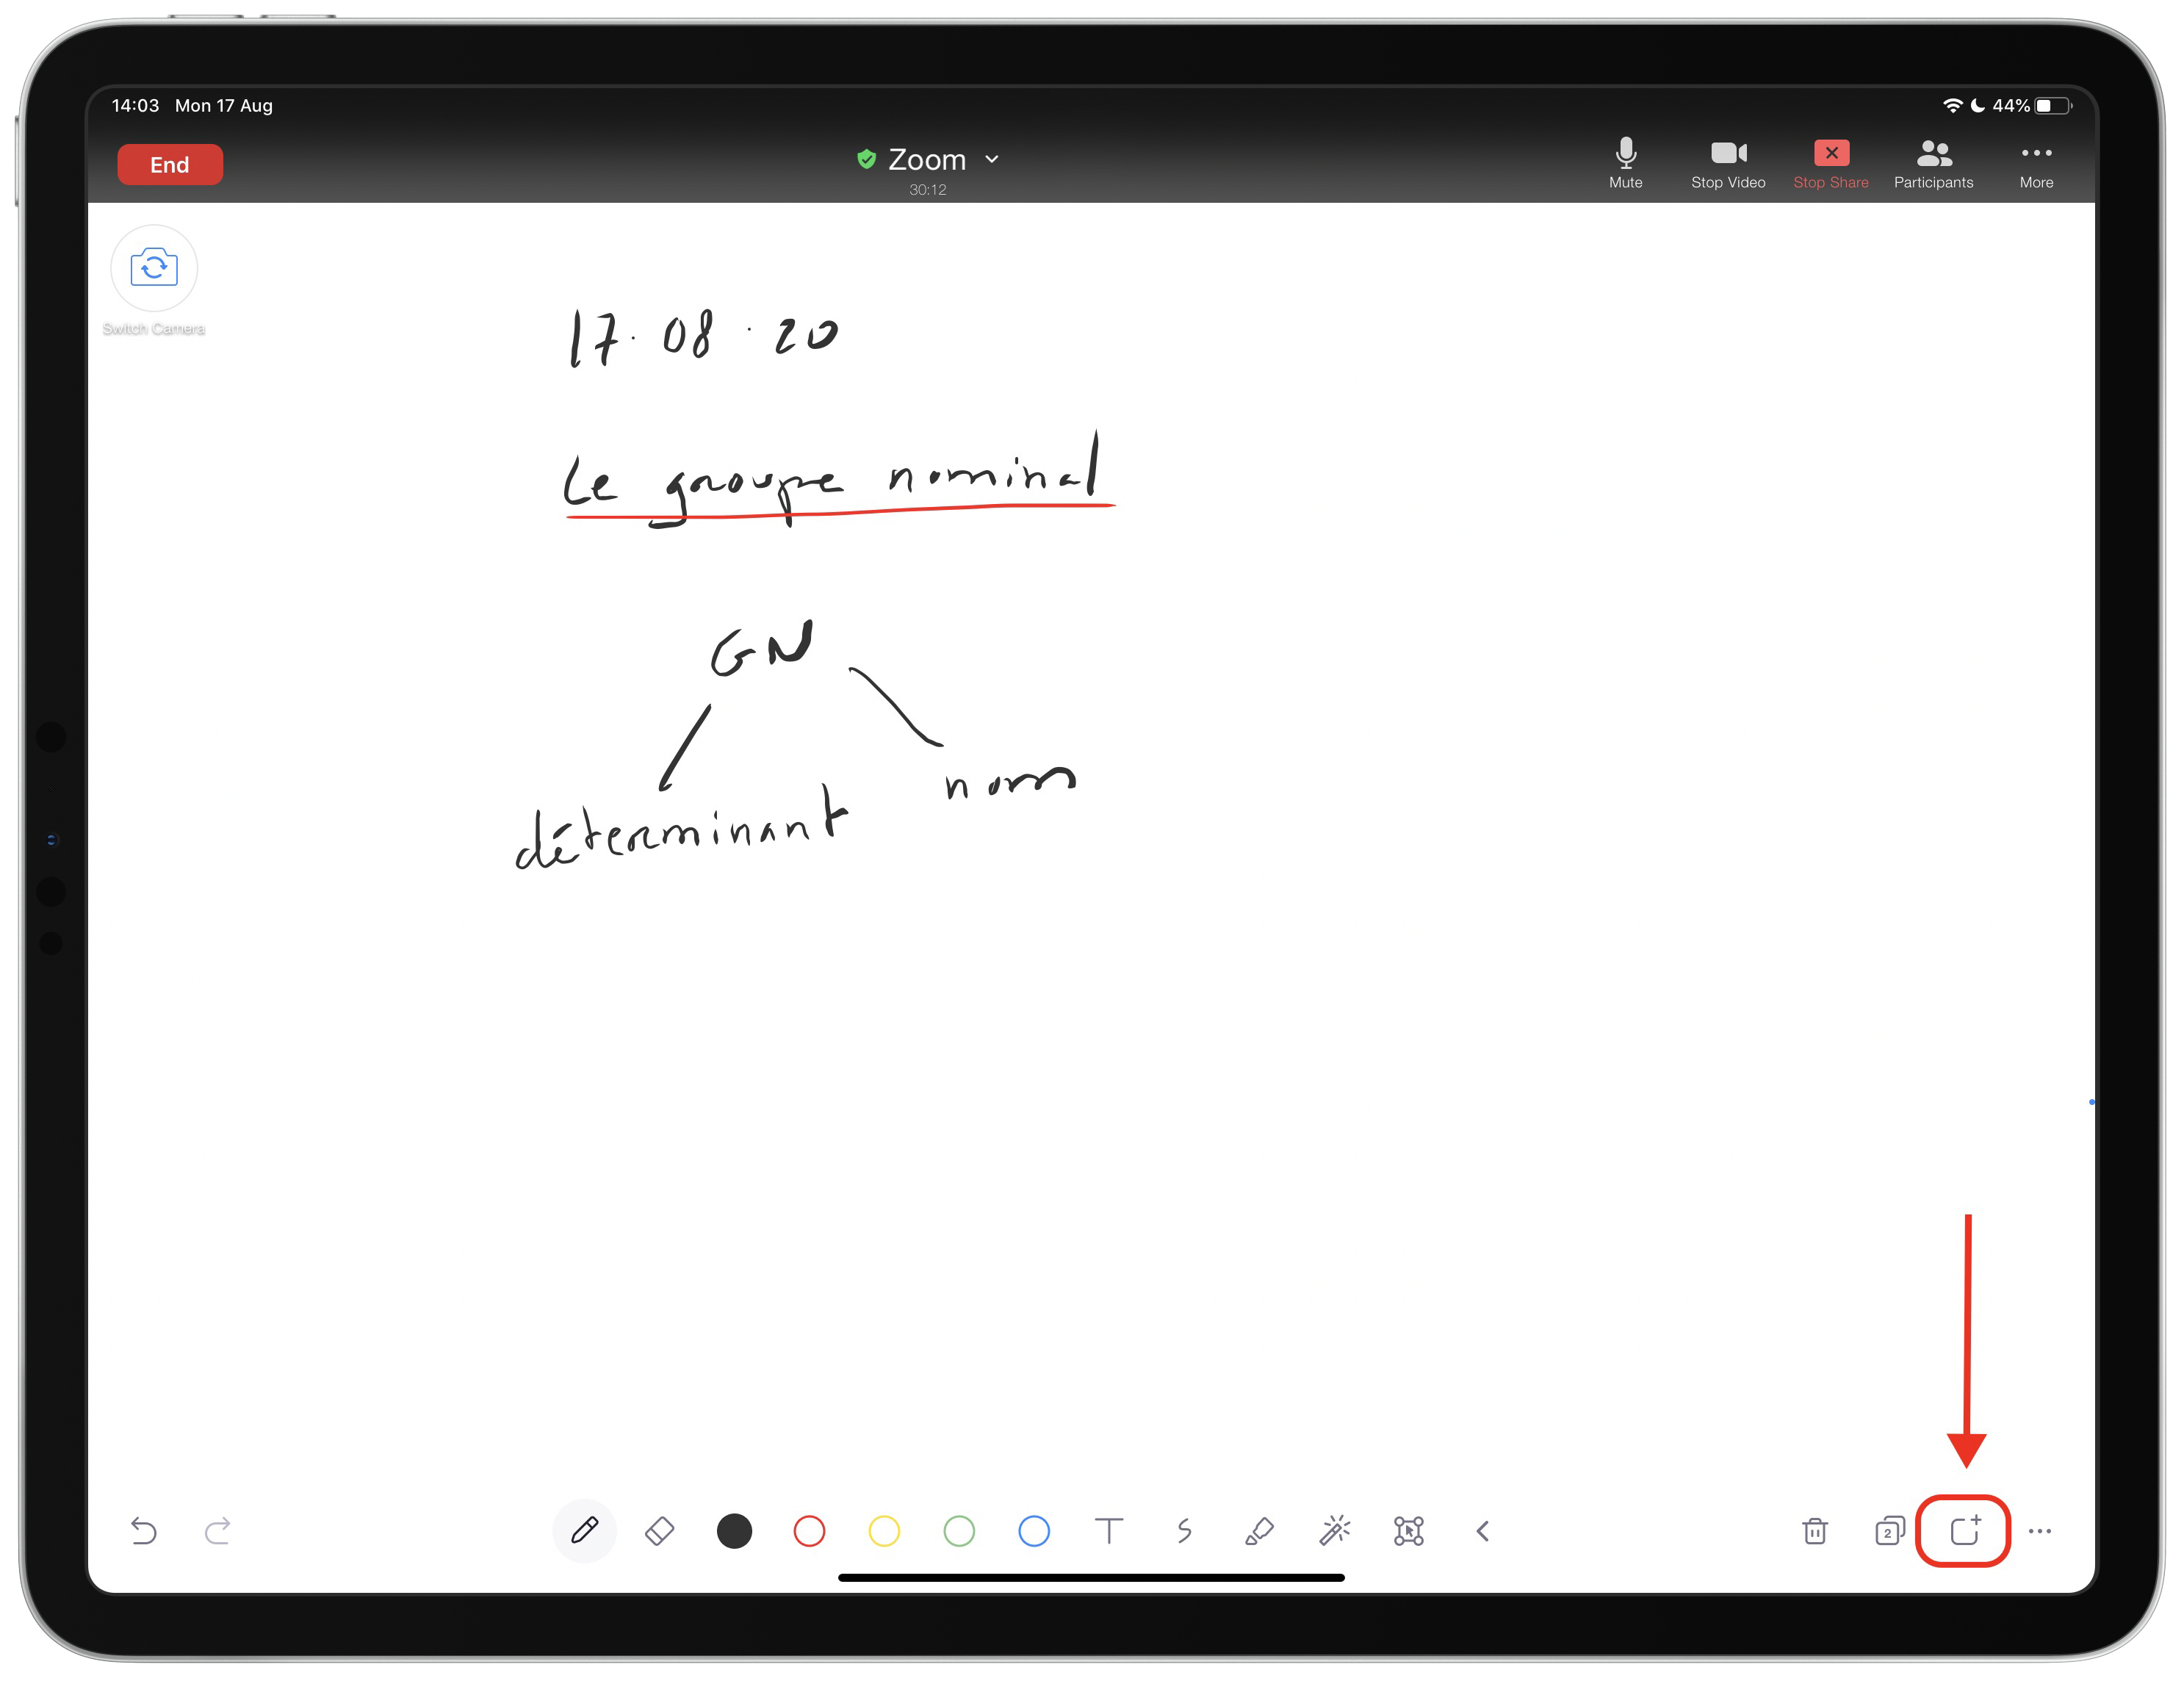 14:03 Mon 17 Aug 44%
End
Zoom
30:12
Mute Stop Video Stop Share Participants More
Switch Camera
17.08.20
Le groupe nominal
GN
déterminant nom
T 2